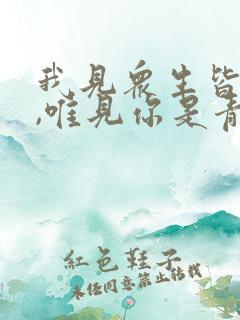 我見眾生皆
,唯見你是青
紅色鞋子
未经同意禁止转载